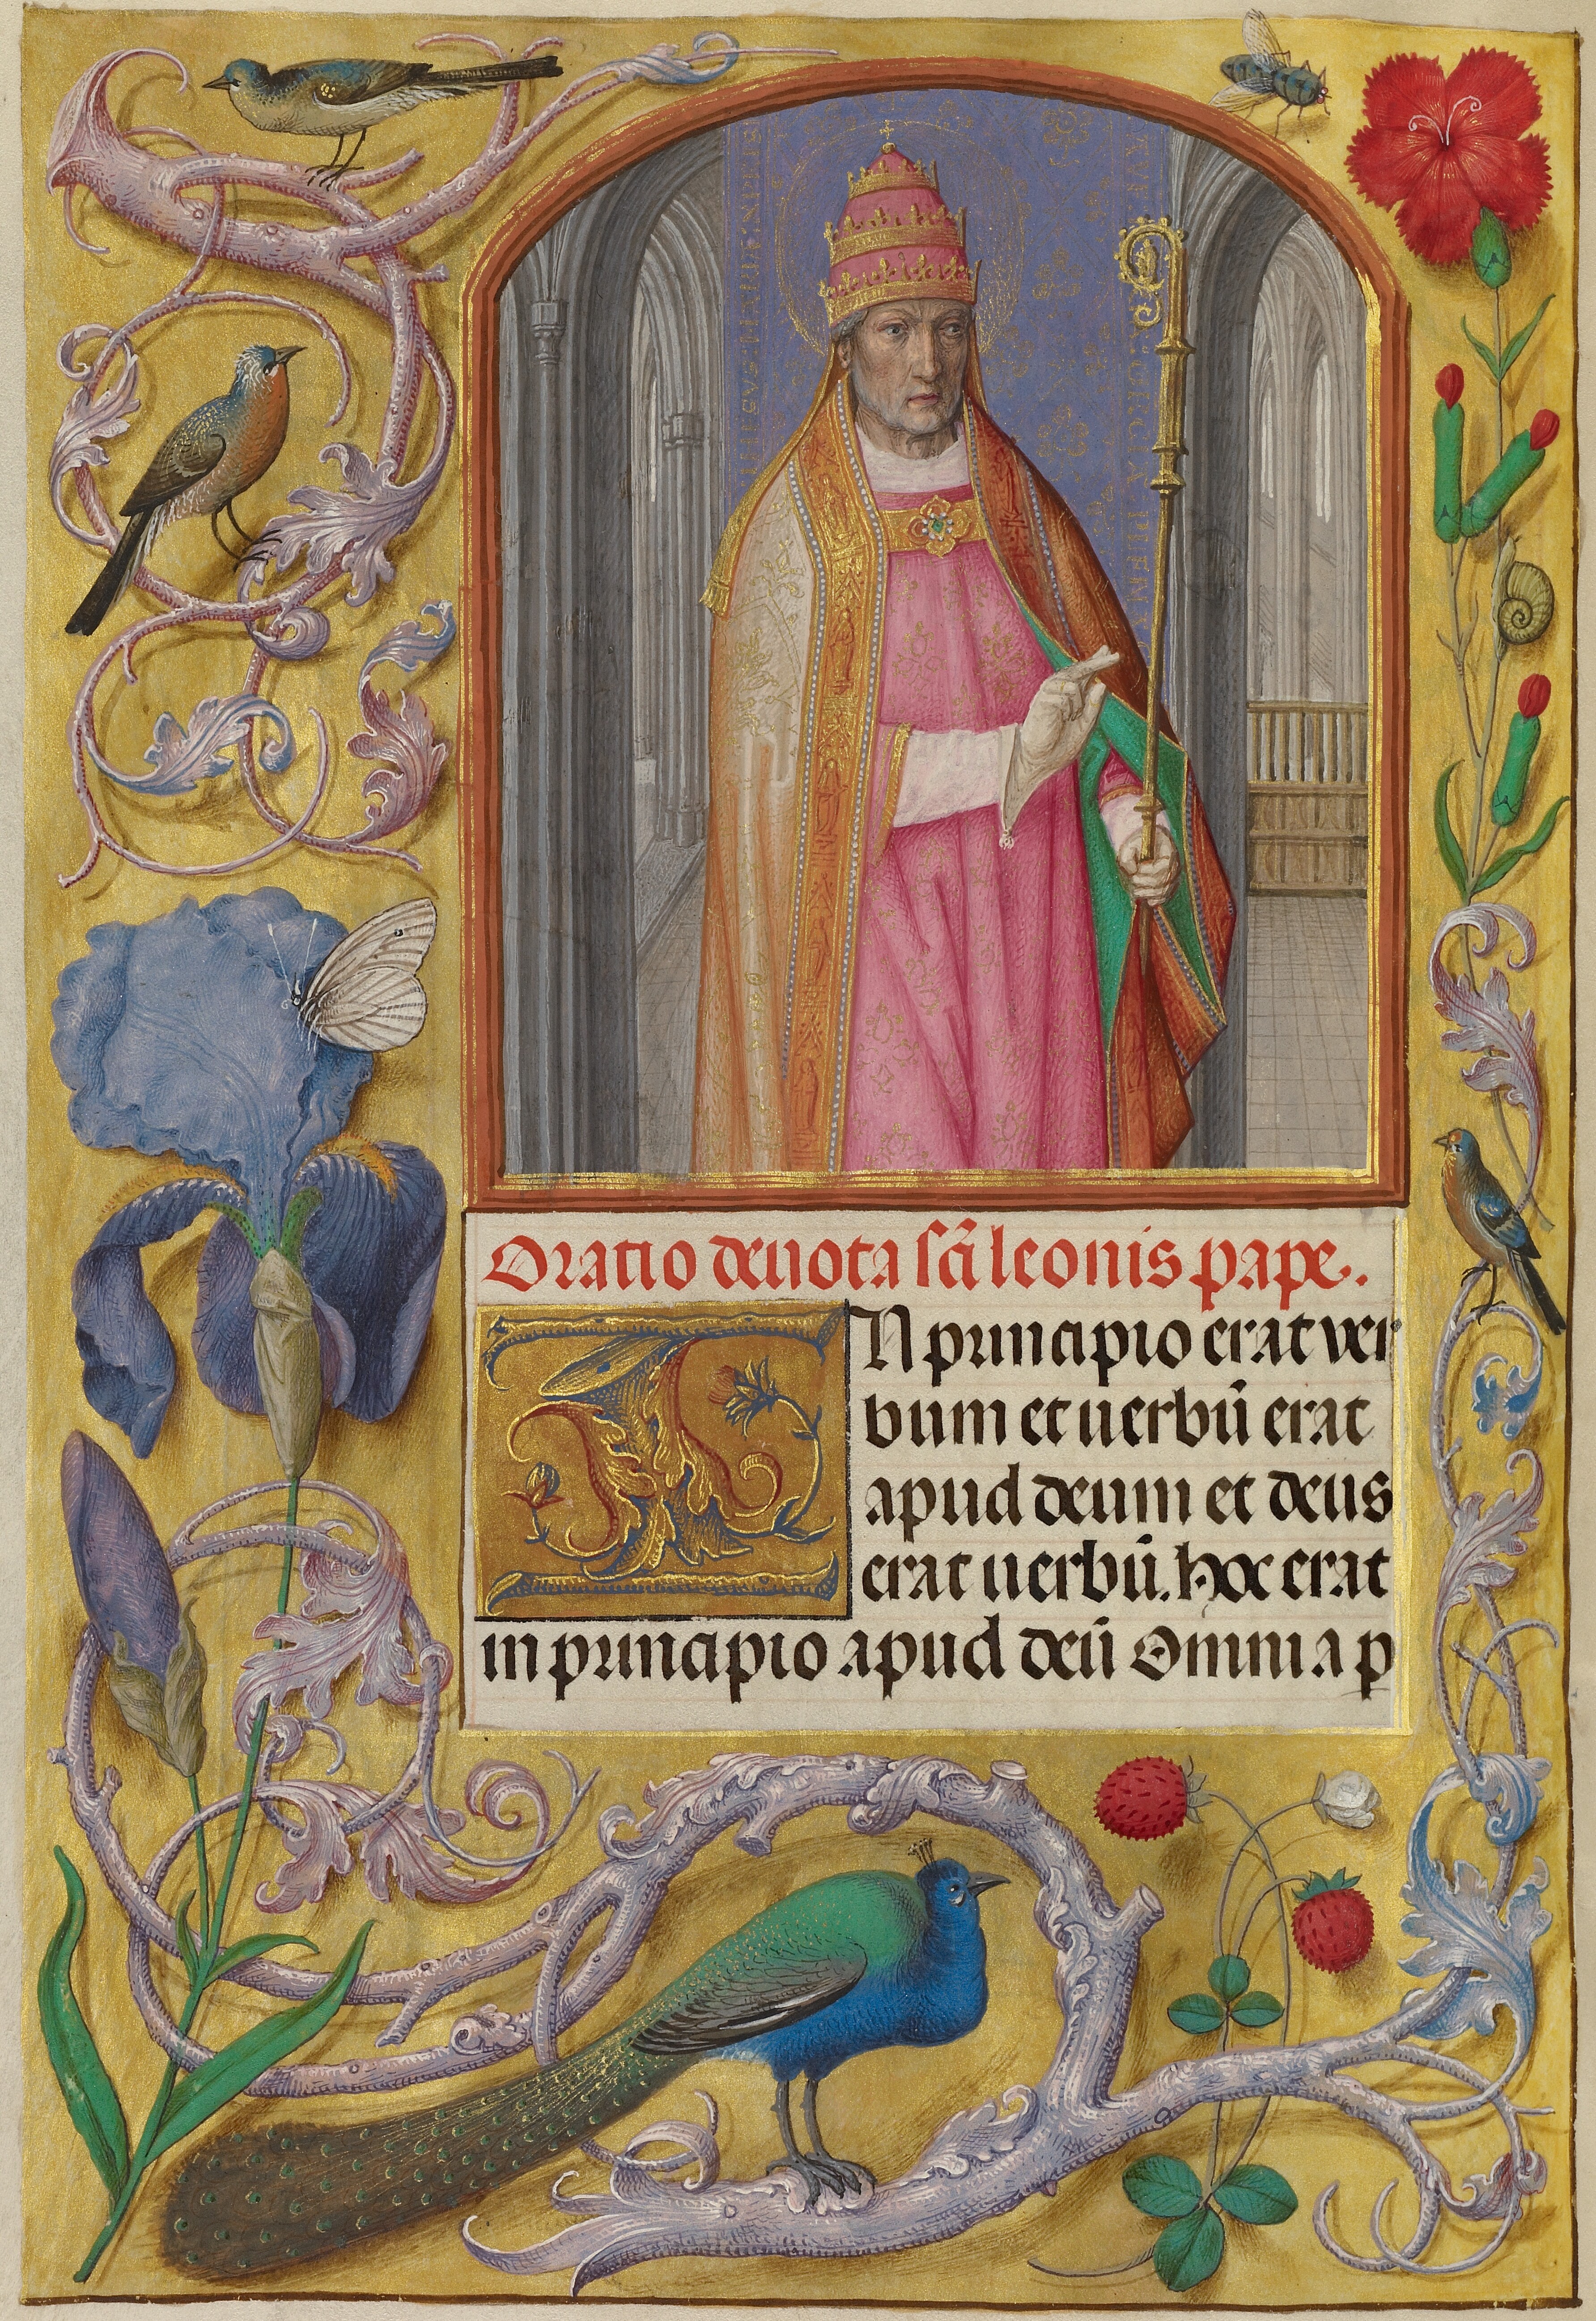 Oratio deuota sc̄i leonis pape.
IN principio erat ver
bum et uerbū erat
apud deum et deus
erat uerbū. hoc erat
in principio apud deū Omnia ꝑ